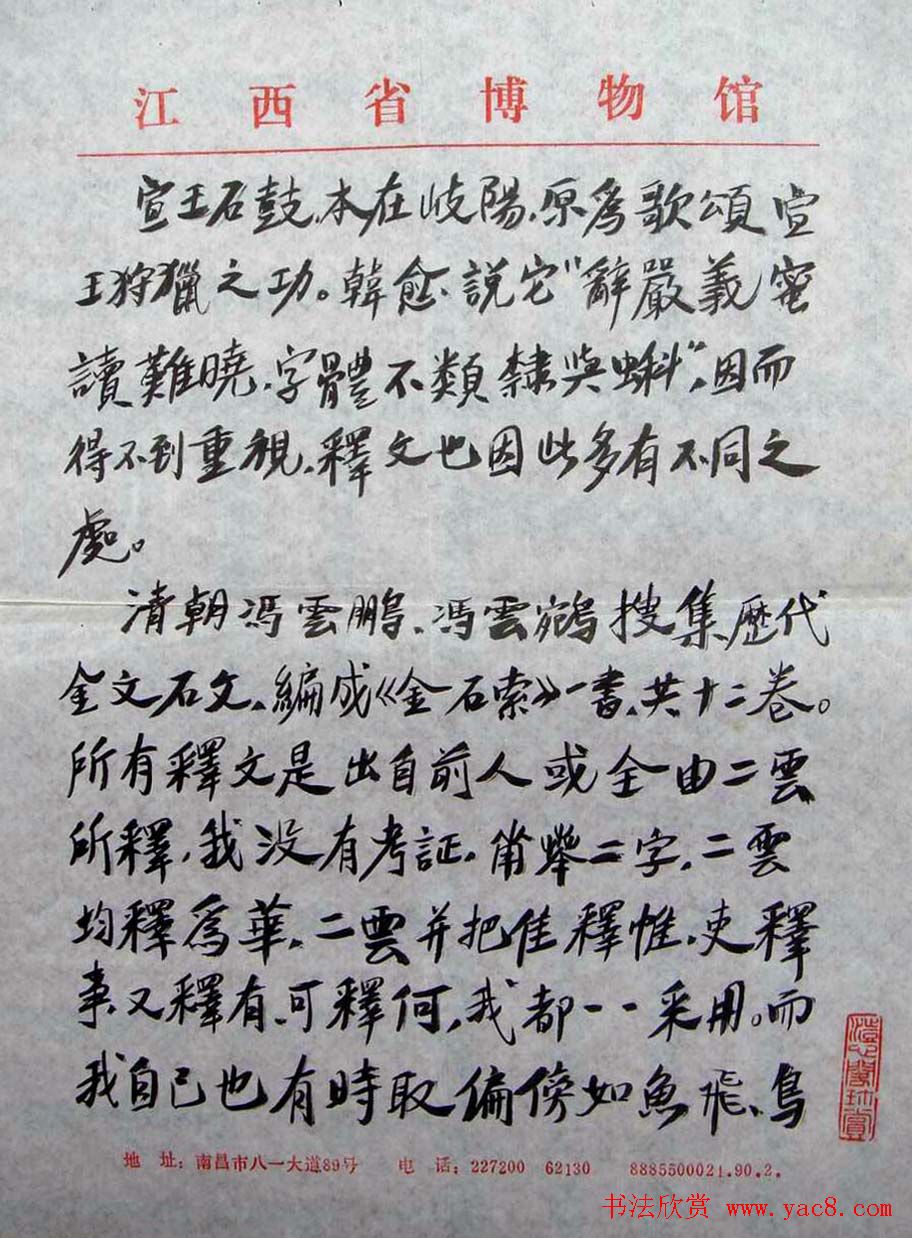 江西省博物馆
宣王石鼓,本在岐陽,原爲歌頌宣
王狩獵之功。韓愈說它"辭嚴義蜜
讀難曉,字體不類隸與蝌",因而
得不到重視,釋文也因此多有不同之
處。
清朝馮雲鵬、馮雲鵷搜集歷代
金文石文,編成《金石索》一書,共十二卷。
所有釋文是出自前人或全由二雲
所釋,我没有考証。二字,二雲
均釋爲華,二雲并把隹釋惟,吏釋
事又釋有,可釋何,我都一一采用。而
我自己也有時取偏傍如魚飛、鳥
地 址:南昌市八一大道89号 电 话:227200 62130 8885500021.90.2.
书法欣赏 www.yac8.com